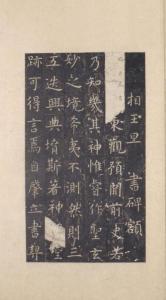 相王旦書碑額
東觀預聞前史若
乃知幾其神惟睿作聖玄
妙之境希夷不測然則三
五迭興典墳斯著神聖
跡可得言焉自肇立書契